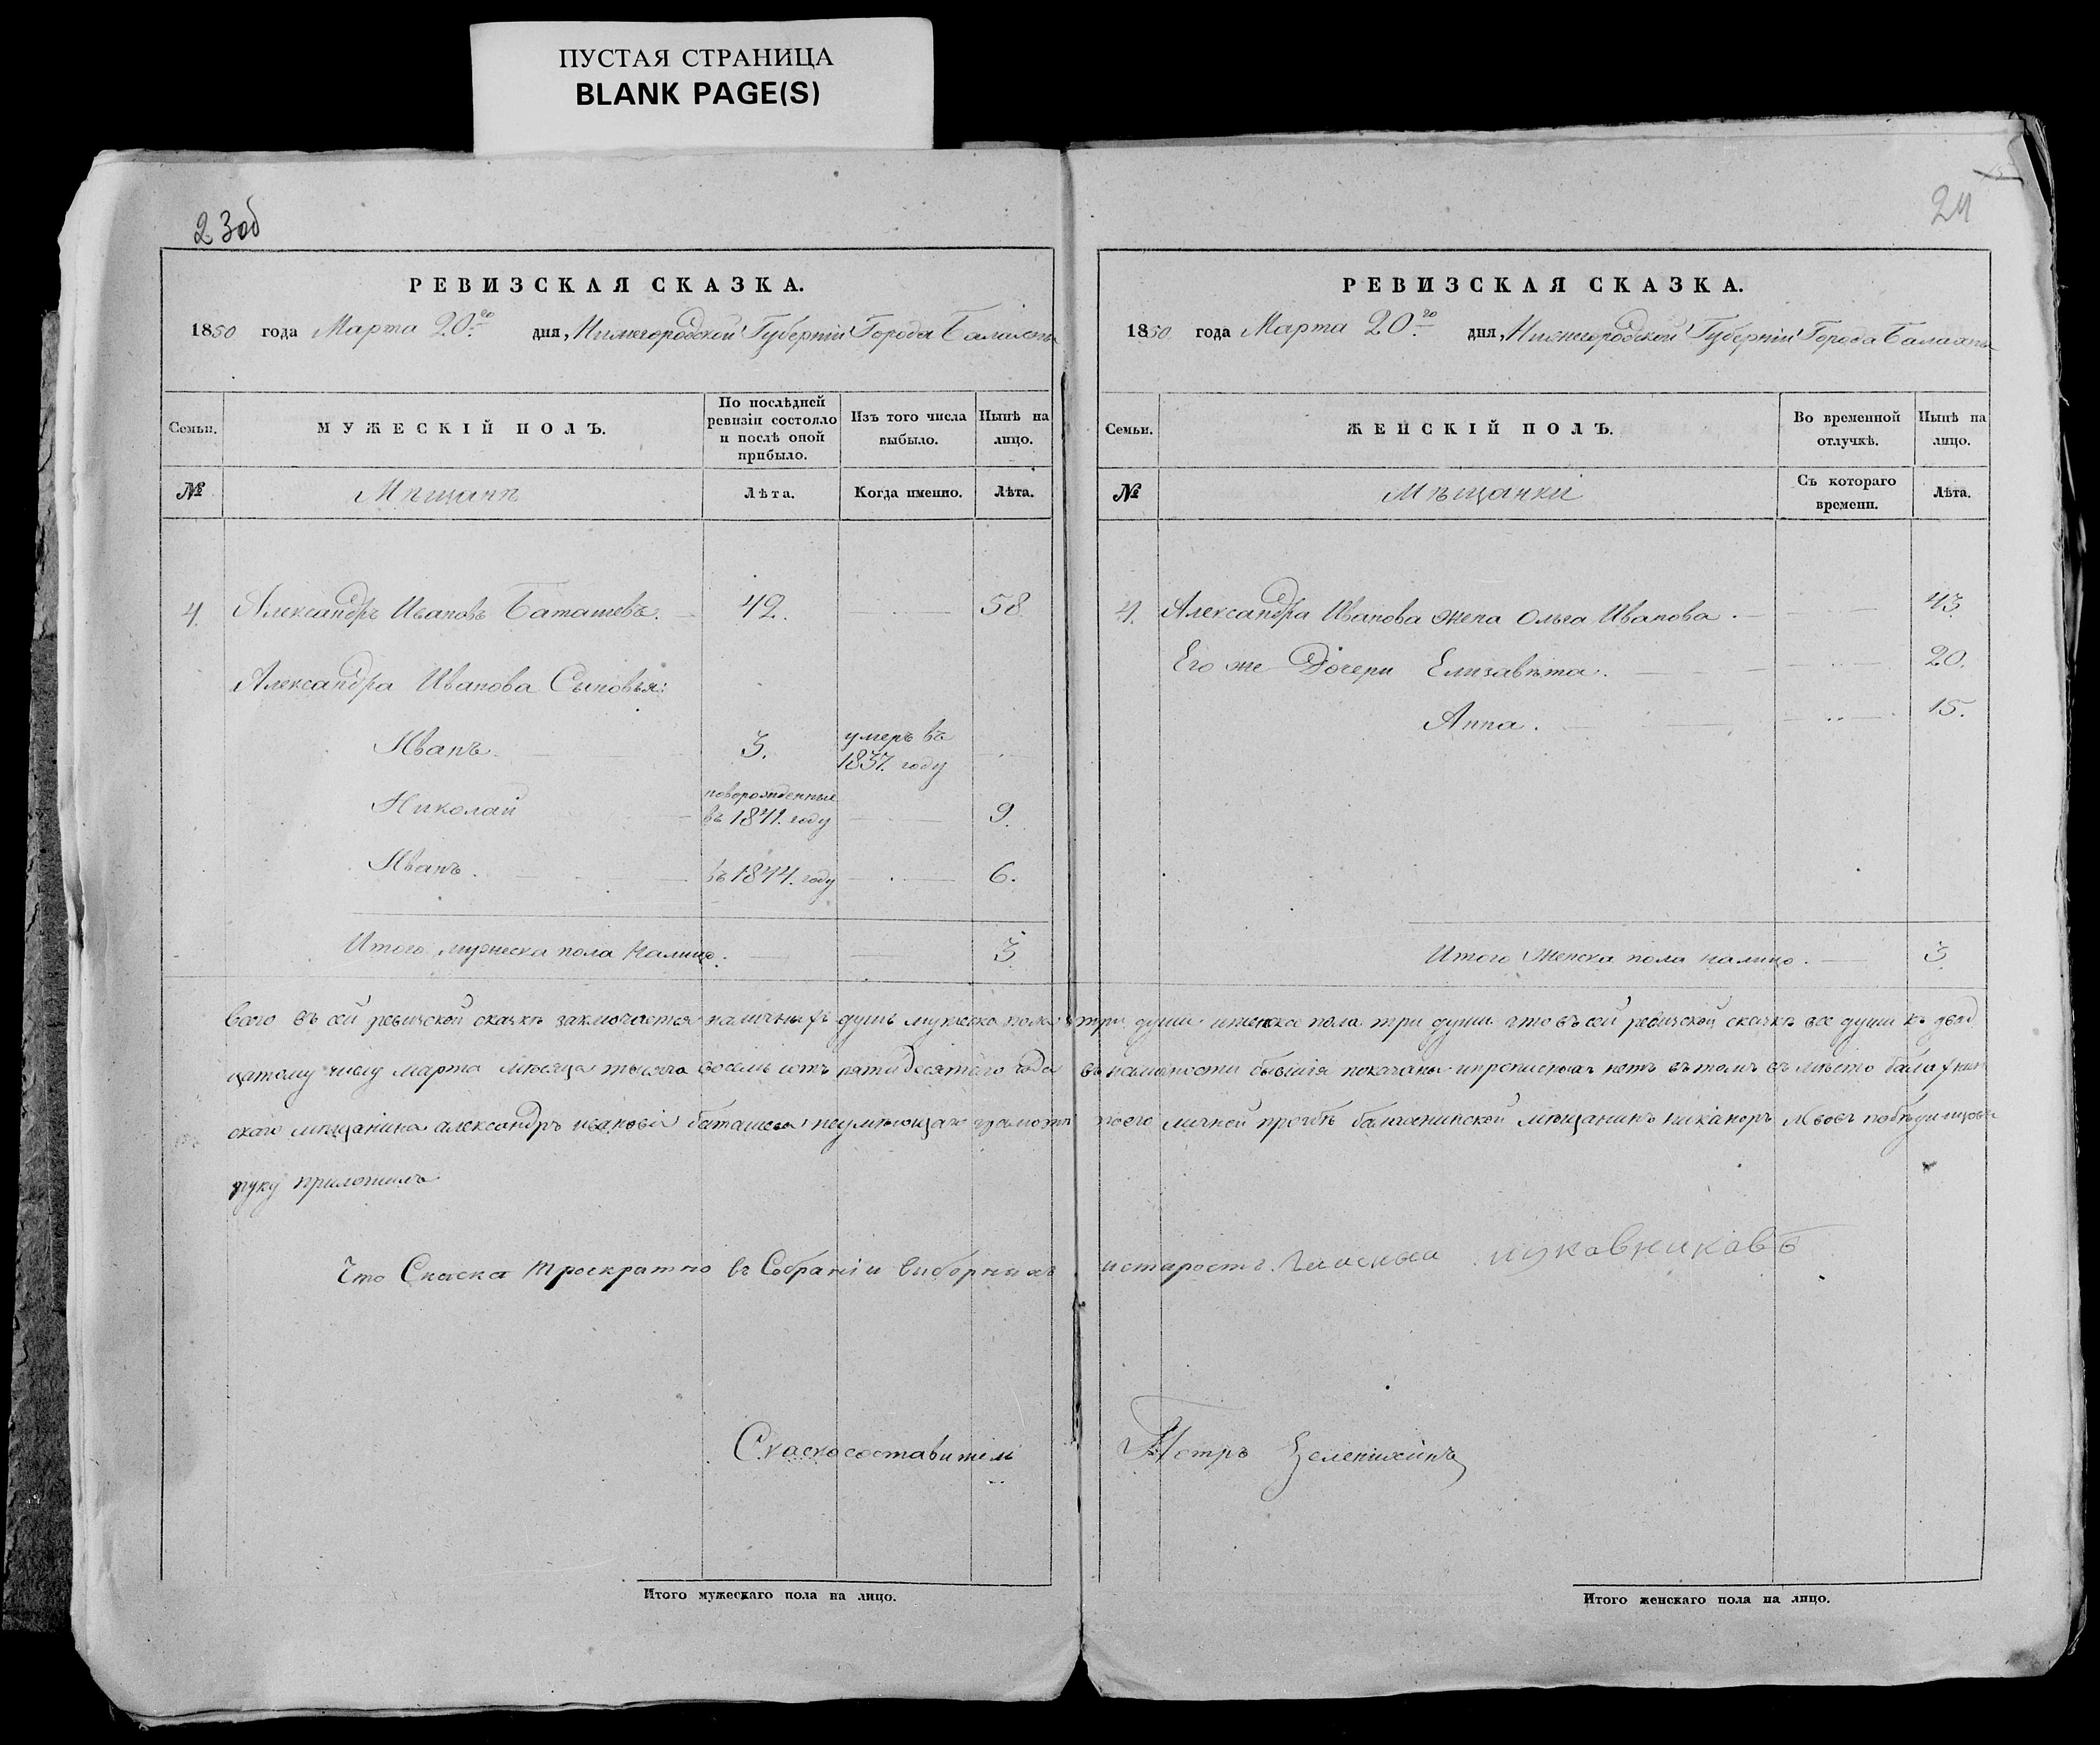 ПУСТАЯ СТРАНИЦА
BLANK PAGE(S)
23об
РЕВИЗСКАЯ СКАЗКА.
1850 года Марта 20го дня, Нижегородской Губерніи Города Балахны
Семьи.
МУЖЕСКІЙ ПОЛЪ.
По послѣдней ревизіи состояло и послѣ оной прибыло.
Изъ того числа выбыло.
Нынѣ на лицо.
№
Мѣщанѣ
Лѣта.
Когда именно.
Лѣта.
4. Александръ Ивановъ Баташевъ. 42. 58
Александра Иванова Сыновья:
Иванъ 3. умеръ въ 1837. году
Николай новорожденные въ 1841. году 9.
Иванъ. въ 1844. году 6.
Итого мужеска пола Налицо. 3
24
РЕВИЗСКАЯ СКАЗКА.
1850 года Марта 20го дня, Нижегородской Губерніи Города Балахны
Семьи.
ЖЕНСКІЙ ПОЛЪ.
Во временной отлучкѣ.
Нынѣ на лицо.
№
Мѣщанки
Съ котораго времени.
Лѣта.
4. Александра Иванова жена Ольга Иванова. 43.
Его же Дочери Елизавѣта. 20.
Анна. 15.
Итого Женска пола налицо. 3.
всего въ сей ревиской скаскѣ заключается наличныхъ душъ мужеска пола три души и женска пола три души что въ сей ревиской скаскѣ все души къ двад
цатому числу марта мѣсяца тысяча восемь сотъ пятидесятого года въ наличности бывшія показаны и прописныхъ нетъ въ томъ въ мѣсто балахнин
скаго мѣщанина александръ иванова баташева неумѣющаго грамотѣ поего личной прозбѣ мѣщанинъ никаноръ
руку приложилъ
Что Скаска троекратно въ Собраніи Выборныхъ и старостъ. Лукавниковъ
Скаскосоставитель Петръ
Итого мужескаго пола на лицо.
Итого женскаго пола на лицо.